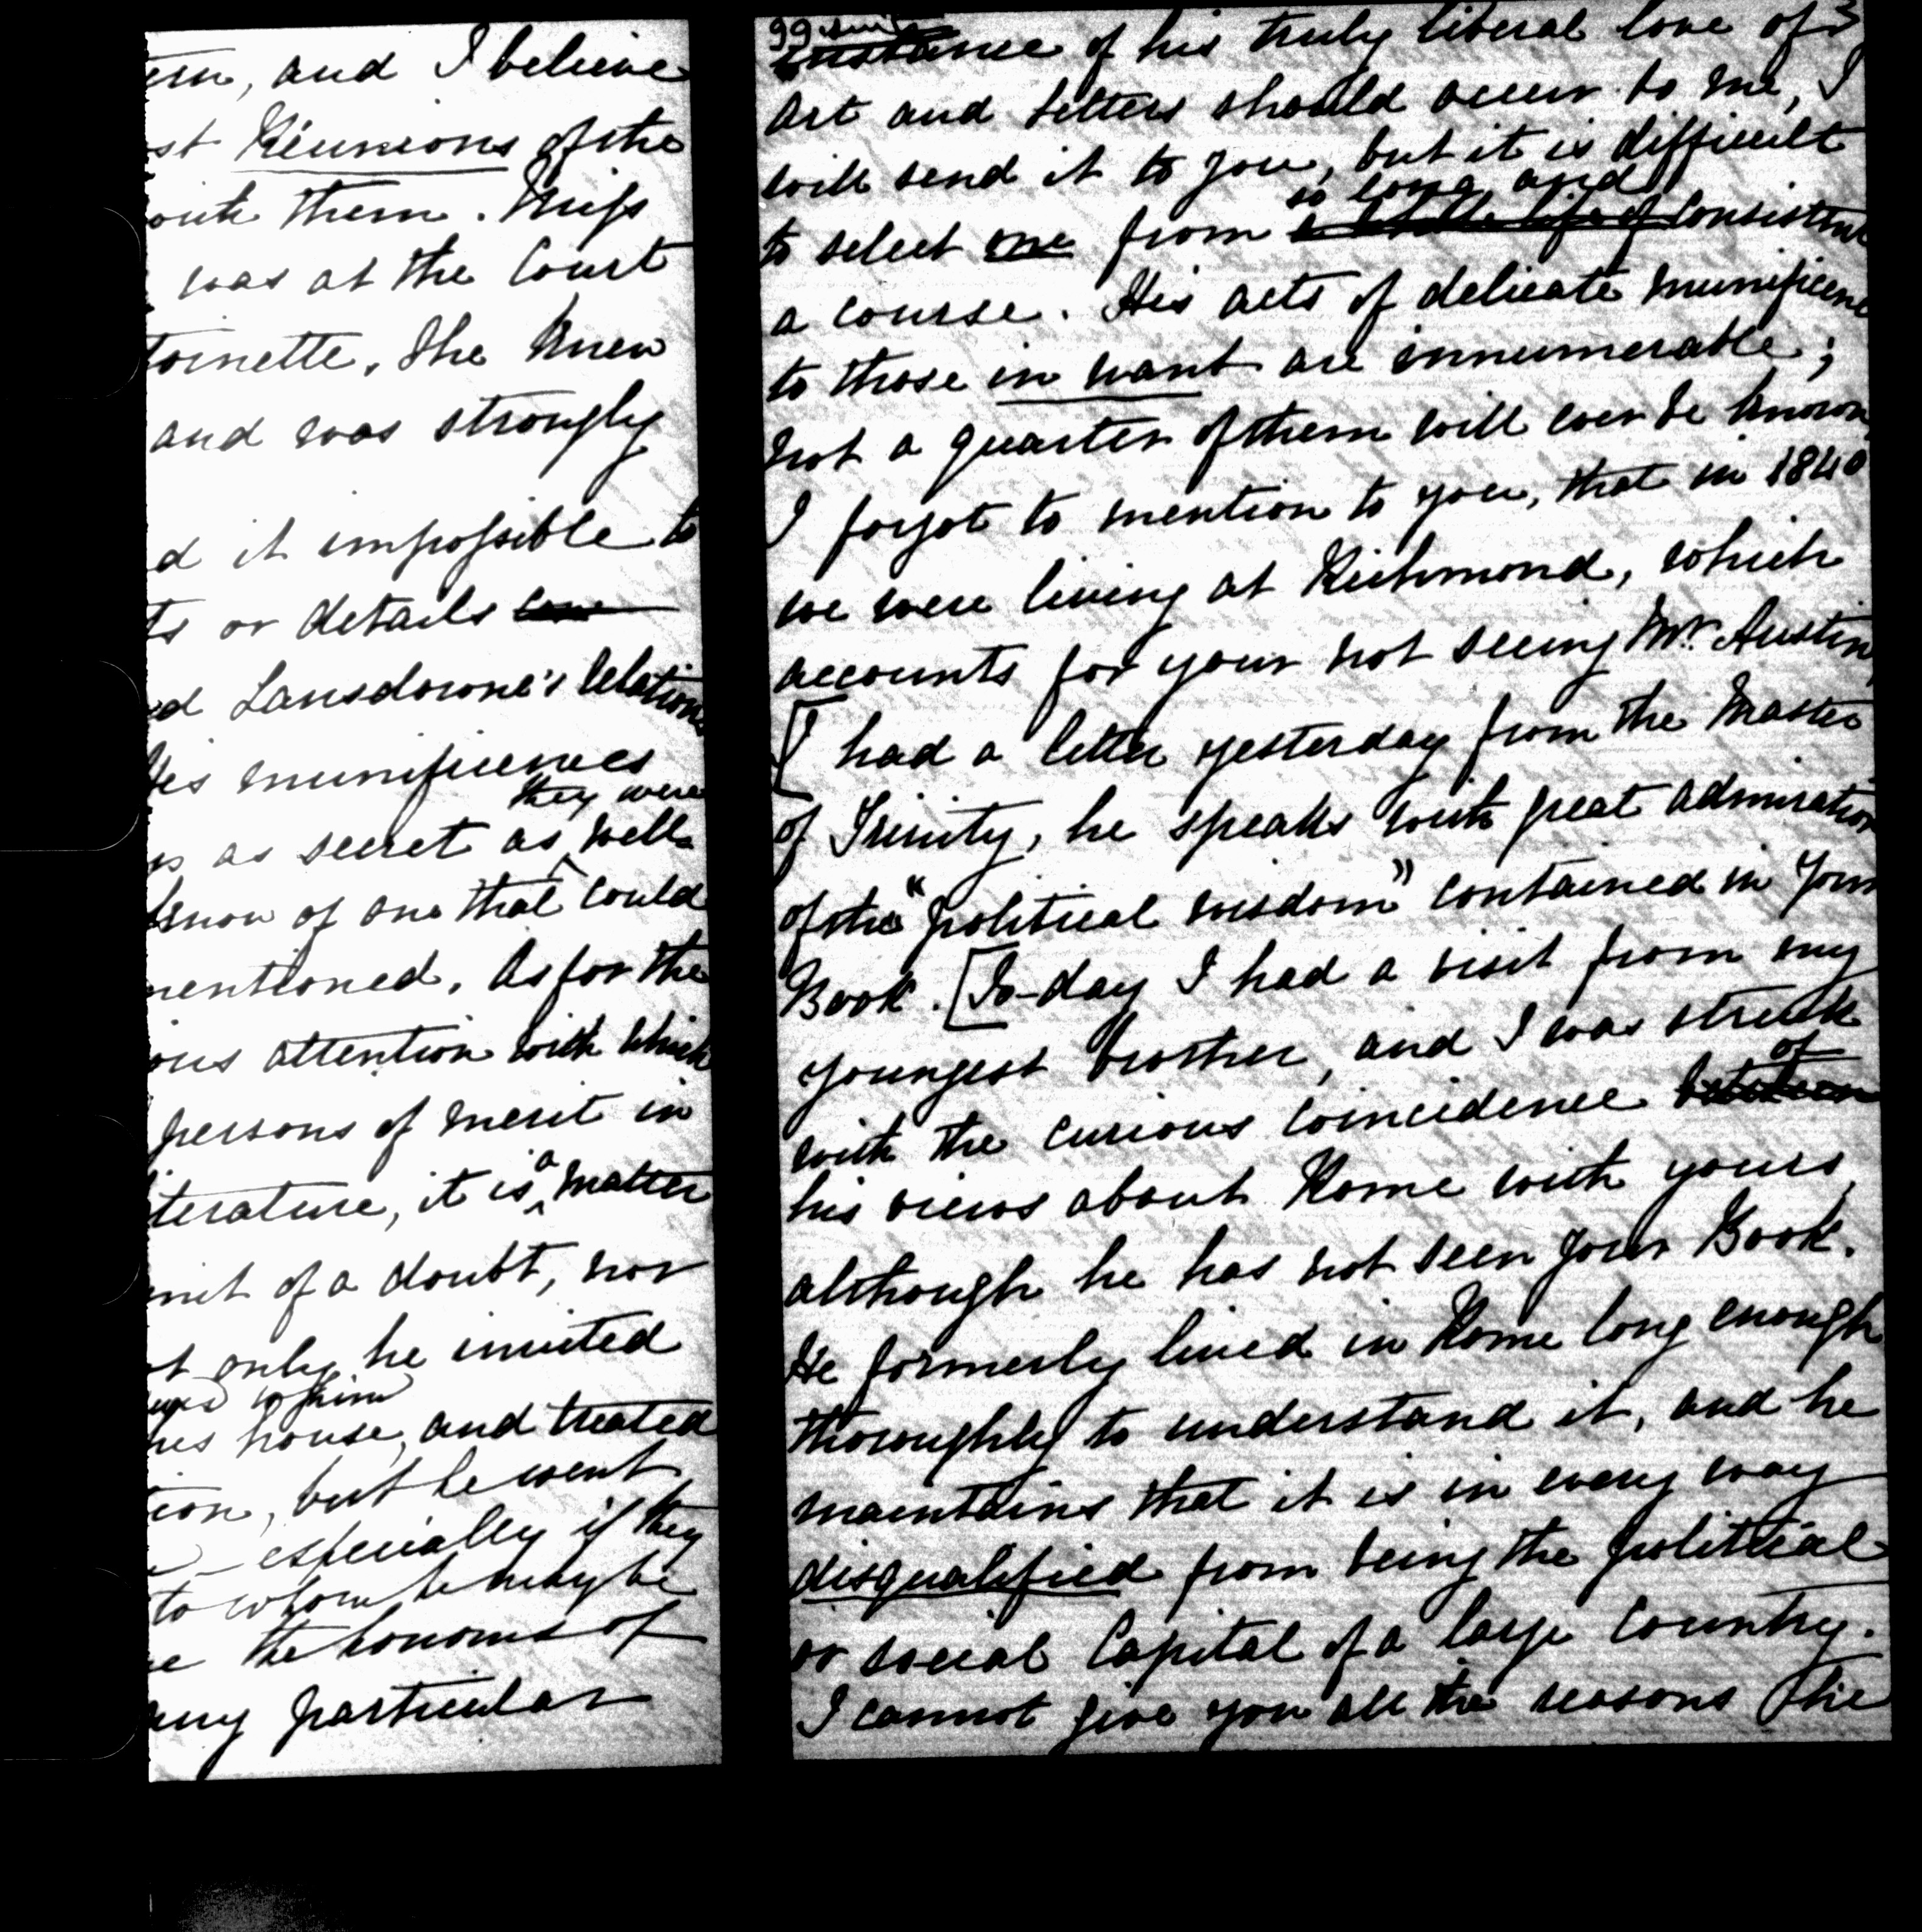 and I believe
st Réunions of the
with them. Miss
was at the Court
toinette. She knew
and was strongly
d it impossible to
ts or details
d Lansdowne's relations
His munificences
they were
as secret as ^ well.
know of one that could
mentioned. As for the
ous attention with which
persons of merit in
a
terature, it is ^ matter
mit of a doubt, nor
ot only he invited
his house, and treated
tion, but he went
especially if they
to whom he may be
the honours of
any particular
99
instance of his truly liberal love of 3
Art and letters should occur to me, I
will send it to you, but it is difficult
so long and
to select one from a whole life of consistent
a course. His acts of delicate munificence
to those in want are innumerable;
not a quarter of them will ever be known
I forgot to mention to you, that in 1840
we were living at Richmond, which
accounts for your not seeing Mr. Austin,
[I had a letter yesterday from the Master
of Trinity, he speaks with great admiration
of the "political wisdom" contained in Your
Book. [To-day I had a visit from my
youngest brother, and I was struck
of
with the curious coincidence between
his views about Rome with yours,
although he has not seen your Book.
He formerly lived in Rome long enough
thoroughly to understand it, and he
maintains that it is in every way
disqualified from being the political
or social Capital of a large country.
I cannot give you all the reasons (the